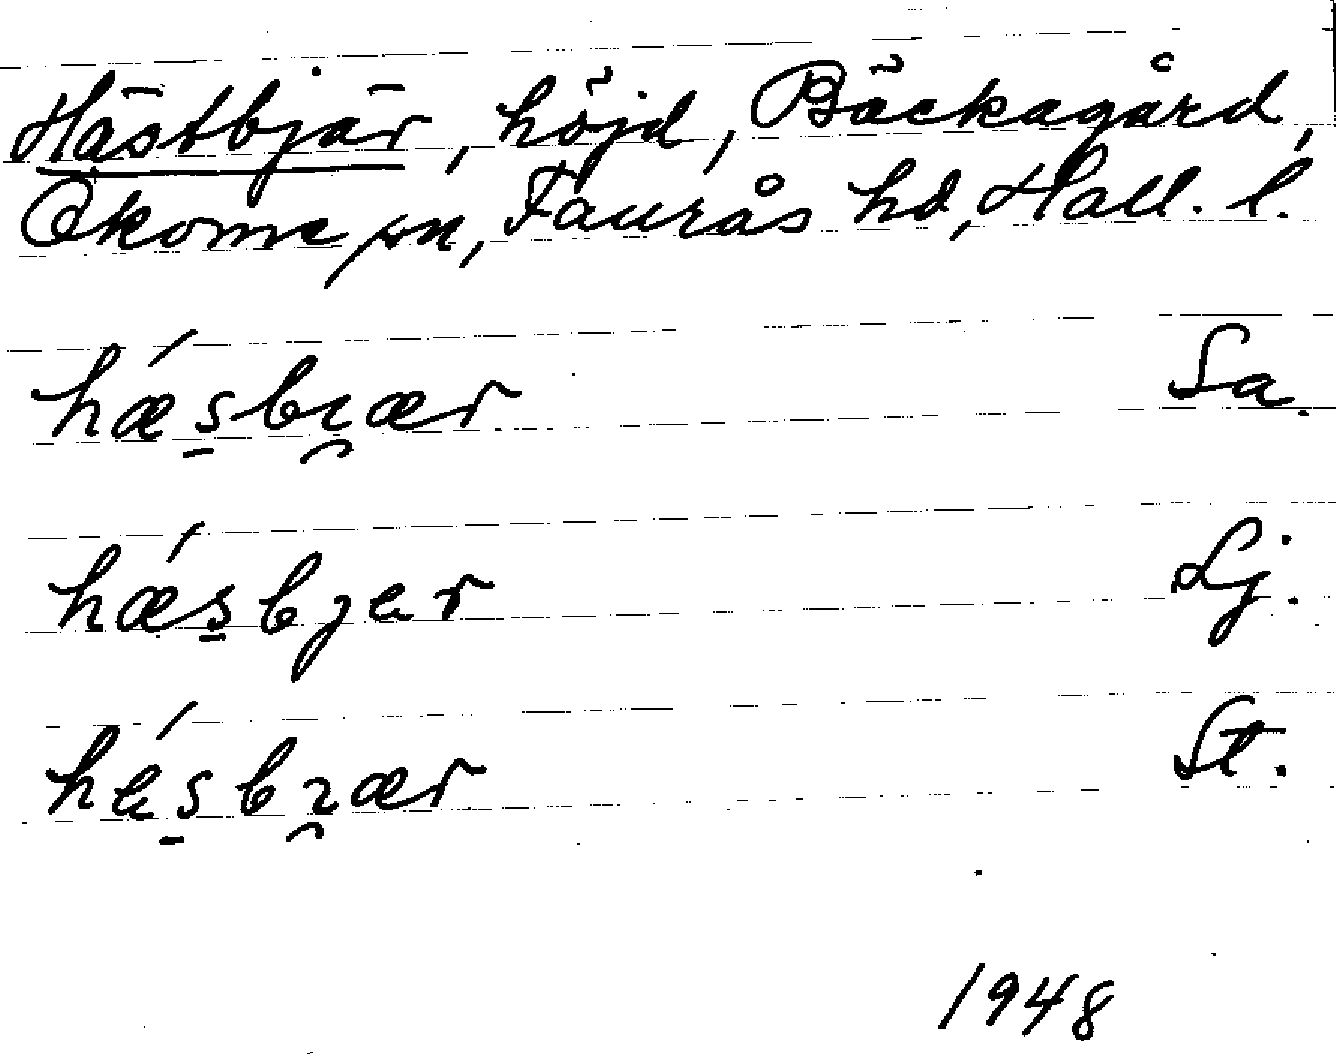 Hästbjär, höjd, Bäckagård,
Okome sn, Faurås hd, Hall. l.
hǽs̱bı̯ær Sa.
hǽs̱bjer Lj.
hés̱bı̯ær St.
1948